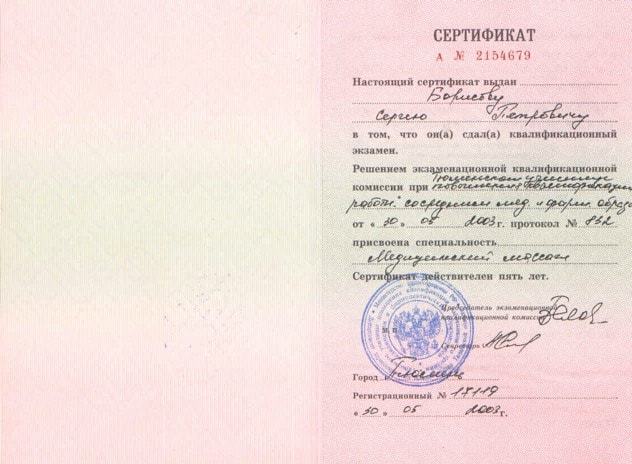 СЕРТИФИКАТ
А № 2154679
Настоящий сертификат выдан
Борисову
Сергею Петровичу
в том, что он(а) сдал(а) квалификационный
экзамен.
Решением экзаменационной квалификационной
комиссии при Тюменском
работн. со средним мед. и фарм. образ
от « 30 » 05 2003г. протокол № 832
присвоена специальность
Медицинский массаж
Сертификат действителен пять лет.
Председатель экзаменационной
квалификационной комиссии
М. П.
Секретарь
Город Тюмень
Регистрационный № 17119
« 30 » 05 2003г.